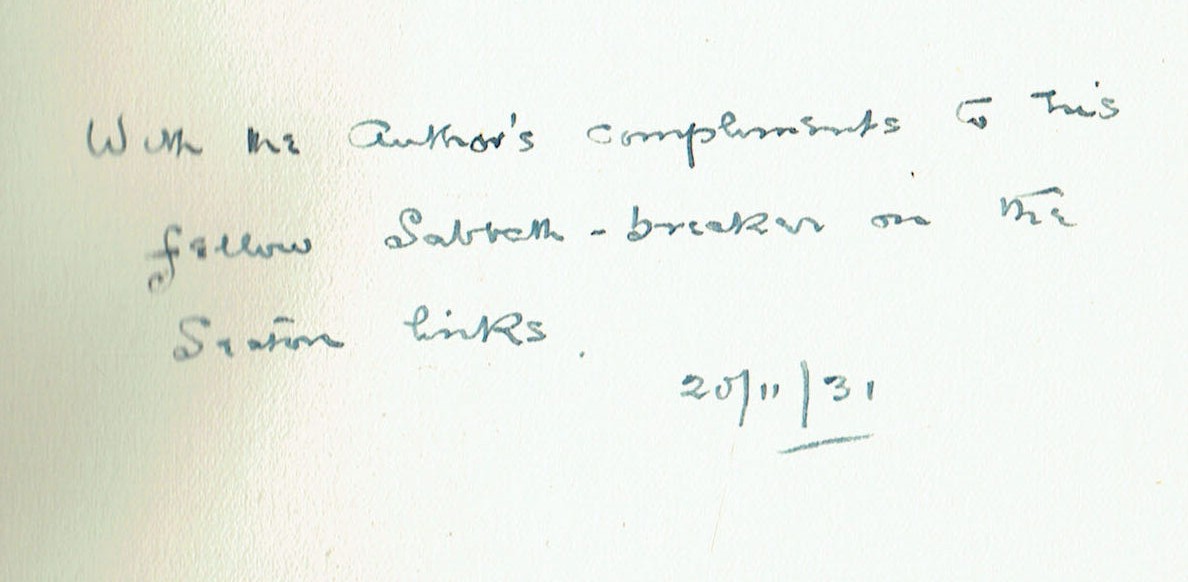 With the author's compliments to his
fellow Sabbath-breaker on the
Seaton links.
20/11/31